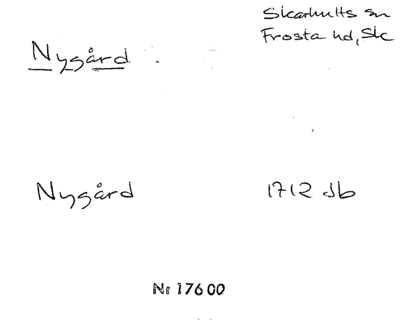 Nygård
Skarhults sn
Frosta hd, Sk
Nygård 1712 Jb
Nr 17600